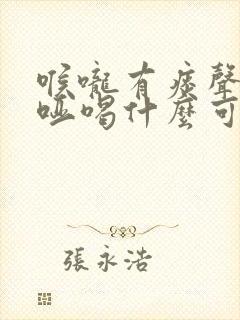 喉嚨有痰聲
啞喝什麼可
張永浩